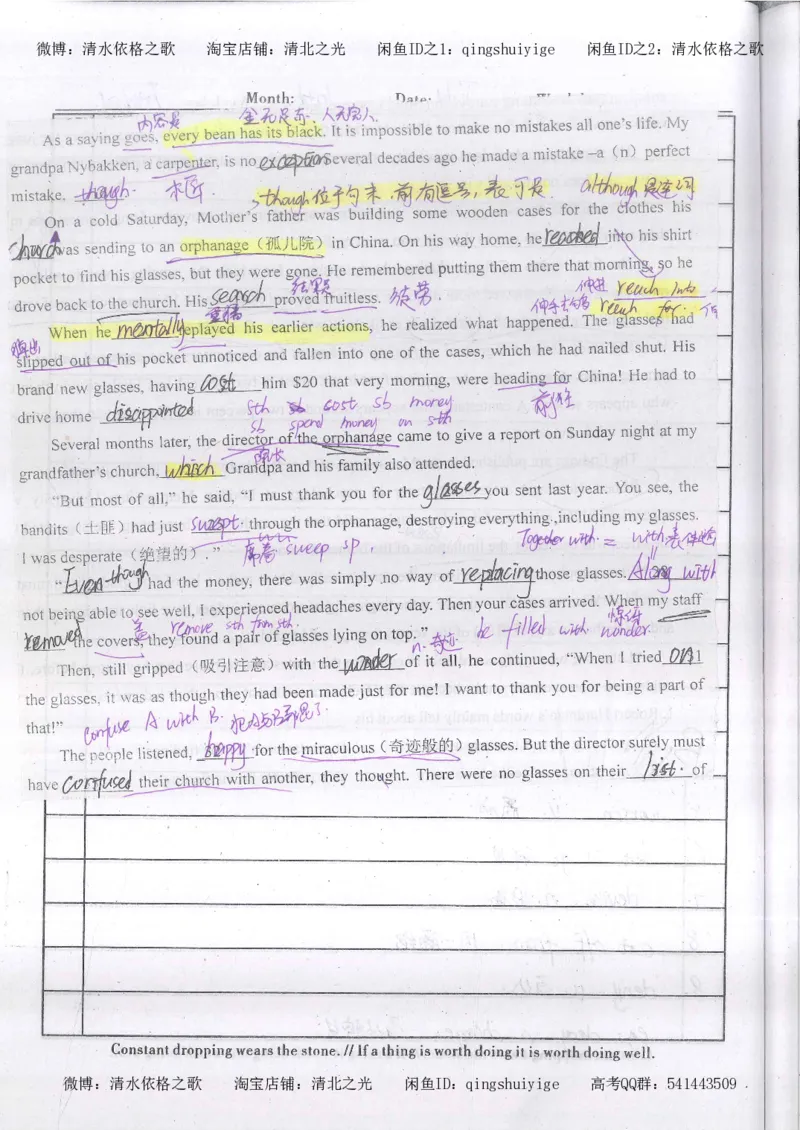 微博：清水依格之歌 淘宝店铺：清北之光 闲鱼ID之1：qingshuiyige 闲鱼ID之2：清水依格之歌
Month: Date:
内容是 金无足赤，人无完人
As a saying goes, every bean has its black. It is impossible to make no mistakes all one's life. My
grandpa Nybakken, a carpenter, is no exception Several decades ago he made a mistake –a（n）perfect
mistake, though. 木匠. though位于句末，前有逗号，表可是 although是连词
On a cold Saturday, Mother's father was building some wooden cases for the clothes his
church was sending to an orphanage（孤儿院）in China. On his way home, he reached into his shirt
pocket to find his glasses, but they were gone. He remembered putting them there that morning, so he
结果 伸进 reach into
drove back to the church. His search proved fruitless. 徒劳. reach for
重播
When he mentally replayed his earlier actions, he realized what happened. The glasses had
slipped out of his pocket unnoticed and fallen into one of the cases, which he had nailed shut. His
brand new glasses, having cost him $20 that very morning, were heading for China! He had to
drive home disappointed sth cost sb money 前往
sb spend money on sth
Several months later, the director of the orphanage came to give a report on Sunday night at my
院长
grandfather's church, which Grandpa and his family also attended.
"But most of all," he said, "I must thank you for the glasses you sent last year. You see, the
bandits（土匪）had just swept through the orphanage, destroying everything, including my glasses.
I was desperate（绝望的）." 席卷 sweep sp. Together with = with
"Even though had the money, there was simply no way of replacing those glasses. Along with
not being able to see well, I experienced headaches every day. Then your cases arrived. When my staff
盖 remove sth from sth.
removed the covers, they found a pair of glasses lying on top."
n. 奇迹 be filled with wonder
Then, still gripped（吸引注意）with the wonder of it all, he continued, "When I tried on
the glasses, it was as though they had been made just for me! I want to thank you for being a part of
that!" confuse A with B.
The people listened, happy for the miraculous（奇迹般的）glasses. But the director surely must
have confused their church with another, they thought. There were no glasses on their list. of
Constant dropping wears the stone. // If a thing is worth doing it is worth doing well.
微博：清水依格之歌 淘宝店铺：清北之光 闲鱼ID：qingshuiyige 高考QQ群：541443509